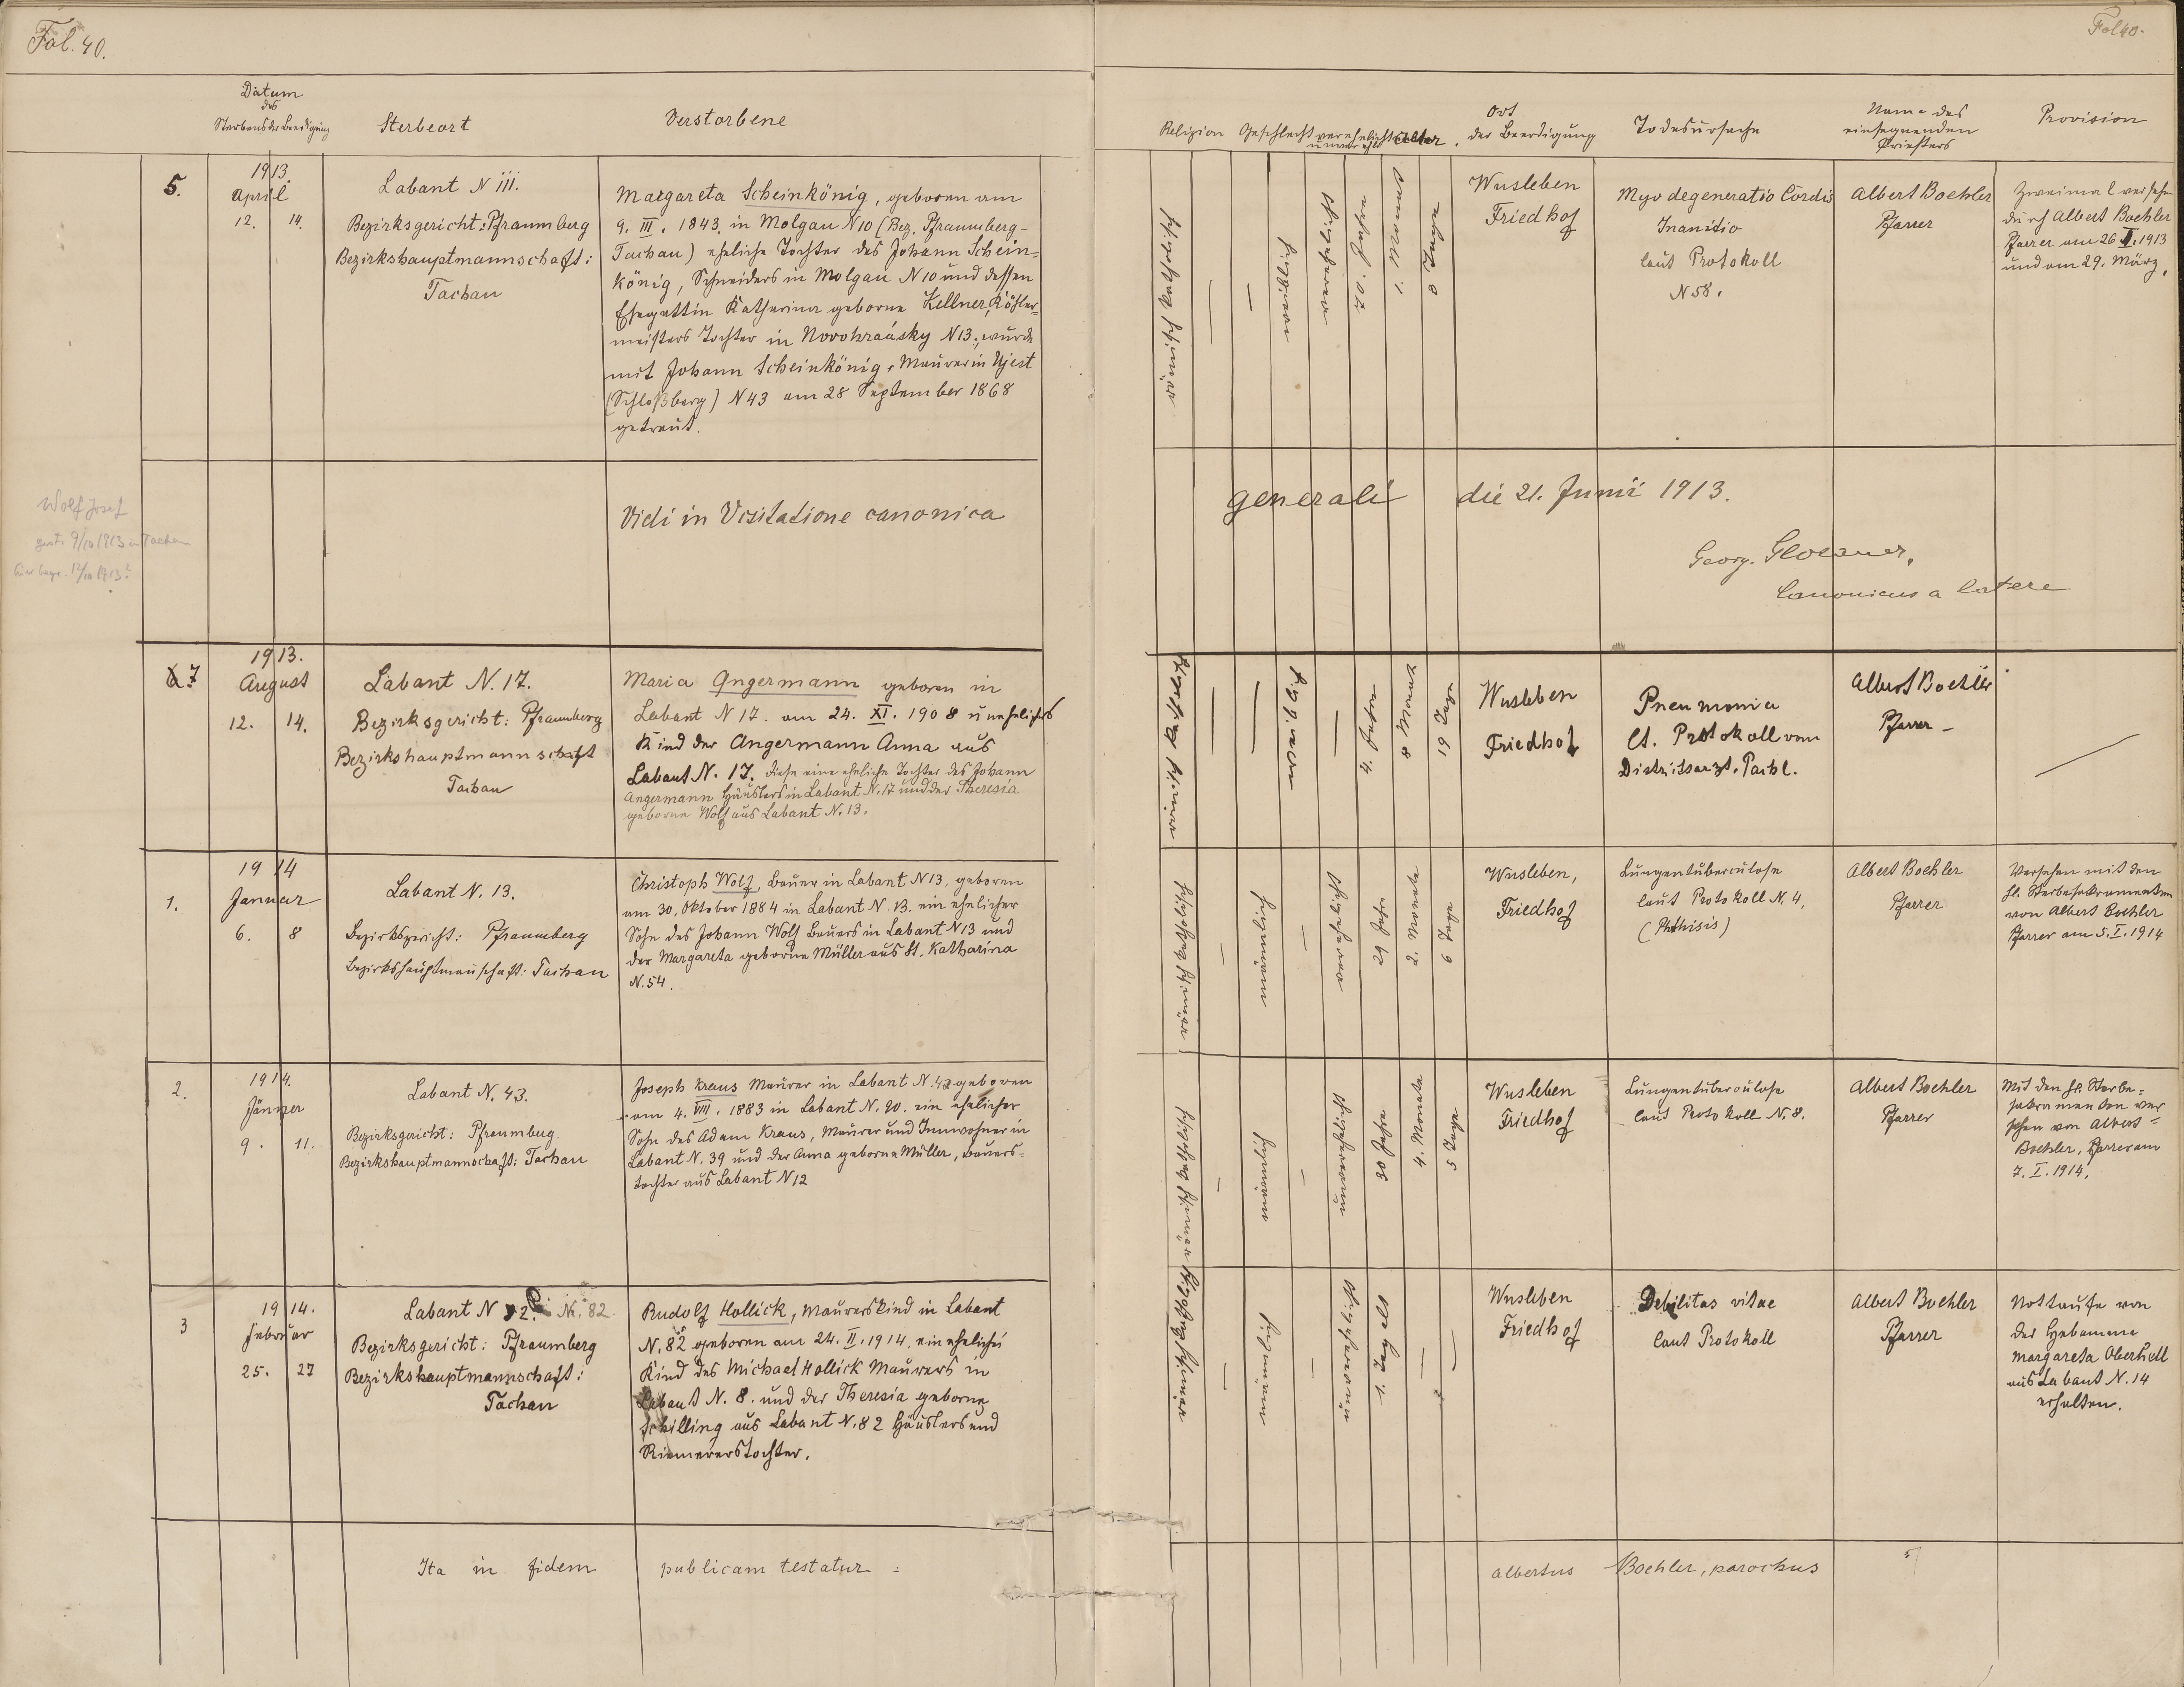 Fol. 40.
Fol 40.
Datum
des
Sterbens der Beerdigung
Sterbeort
Verstorbene
Religion
Geschlecht
verehelicht
unverehl.
Alter.
Ort
der Beerdigung
Todesursache
Name des
einsegnenden
Priesters
Provision
5.
1913.
April
12. 14.
Labant N III.
Bezirksgericht: Pfraumberg
Bezirkshauptmannschaft:
Tachau
Margareta Scheinkönig, geboren am
9. III. 1843. in Molgau N 10 (Bez. Pfraumberg-
Tachau) eheliche Tochter des Johann Schein=
könig, Schneiders in Molgau N 10 und dessen
Ehegattin Katharina geborne Kellner,
meisters Tochter in Novohradsky N 13., wurde
mit Johann Scheinkönig, Maurer in Ujest
(Schloßberg) N 43 am 28 September 1868
getraut.
römisch katholisch
—
—
weiblich
verehelicht
70. Jahre
1. Monat
8 Tage
Wusleben
Friedhof
Myodegeneratio Cordis
Inanitio
laut Protokoll
N 58.
Albert Boehler
Pfarrer
Zweimal versehn
durch Albert Boehler
Pfarrer am 26 II. 1913
und am 29. März.
Wolf Josef
gest. 9/10 1913 in Tachau
hier begr. 12/10 1913?
Vidi in Visitatione canonica
generali die 21. Junii 1913.
Georg. Gloezner,
Canonicus a latere
7
1913.
August
12. 14.
Labant N. 17.
Bezirksgericht: Pfraumberg
Bezirkshauptmannschaft
Tachau
Maria Angermann geboren in
Labant N 17. am 24. XI. 1908 uneheliches
Kind der Angermann Anna aus
Labant N. 17. diese eine eheliche Tochter des Johann
Angermann Häuslers in Labant N. 17 und der Theresia
geborne Wolf aus Labant N. 13.
römisch katholisch
—
—
weiblich
—
4. Jahre
8 Monat
19 Tage
Wusleben
Friedhof
Pneumonia
lt. Protokoll vom
Distriktsarzt. Pachl.
Albert Boehler
Pfarrer —
1.
1914
Januar
6. 8
Labant N. 13.
Bezirksgericht: Pfraumberg
Bezirkshauptmanschaft: Tachau
Christoph Wolf, Bauer in Labant N 13, geboren
am 30. Oktober 1884 in Labant N. 13. ein ehelicher
Sohn des Johann Wolf Bauers in Labant N 13 und
der Margareta geborne Müller aus St. Katharina
N. 54.
römisch katholisch
—
männlich
—
verehelicht
29 Jahre
2. Monate
6 Tage
Wusleben,
Friedhof
Lungentuberculose
laut Protokoll N. 4,
(Phthisis)
Albert Boehler
Pfarrer
Versehen mit den
hl. Sterbesakramenten
von Albert Boehler
Pfarrer am 5. I. 1914
2.
1914.
Jänner
9. 11.
Labant N. 43.
Bezirksgericht: Pfraumbug
Bezirkshauptmannschaft: Tachau
Joseph Kraus Maurer in Labant N. 43 geboren
am 4. VIII. 1883 in Labant N. 20. ein ehelicher
Sohn des Adam Kraus, Maurer und Innwohner in
Labant N. 39 und der Anna geborne Müller, Bauers=
tochter aus Labant N 12
römisch katholisch
—
männlich
—
unverehelicht
30 Jahre
4. Monate
5 Tage
Wusleben
Friedhof
Lungentuberculose
laut Protokoll N. 8.
Albert Boehler
Pfarrer
Mit den hl. Sterbe=
sakramenten ver
sehen von Albert=
Boehler, Pfarrer am
7. I. 1914.
3
1914.
Februar
25. 27
Labant N 82. N. 82.
Bezirksgericht: Pfraumberg
Bezirkshauptmannschaft:
Tachau
Rudolf Hollick, Maurerskind in Labant
N. 82 geboren am 24. II. 1914, ein eheliches
Kind des Michael Hollick Maurers in
Labant N. 8. und der Theresia geborne
Schilling aus Labant N. 82 Häuslers und
Riemererstochter.
römisch katholisch
—
männlich
—
unverehelicht
1. Tag alt
—
—
Wusleben
Friedhof
Debilitas vitae
laut Protokoll
Albert Boehler
Pfarrer
Nottaufe von
der Hebamme
Margareta Oberhell
aus Labant N. 14
erhalten.
Ita in fidem publicam testatur:
Albertus Boehler, parochus